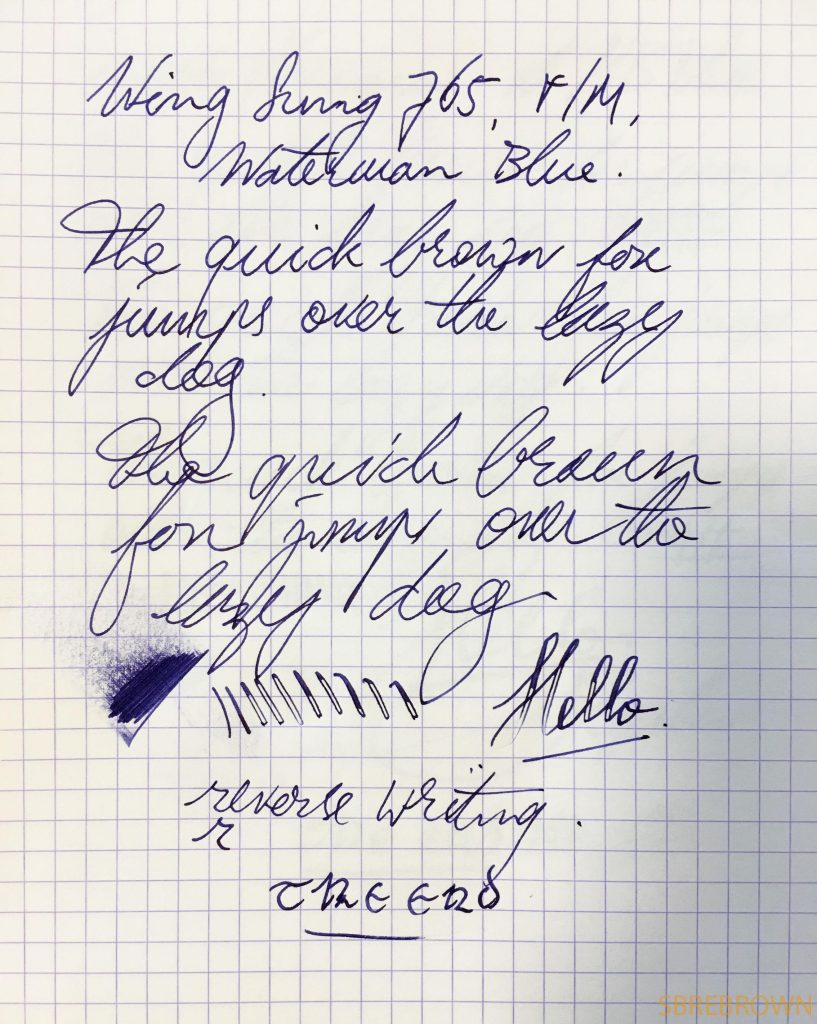 Wing Sung 765, F/M,
Waterman Blue.
The quick brown fox
jumps over the lazy
dog.
The quick brown
fox jumps over the
lazy dog
Hello.
reverse writing.
r
THE END
SBREBROWN